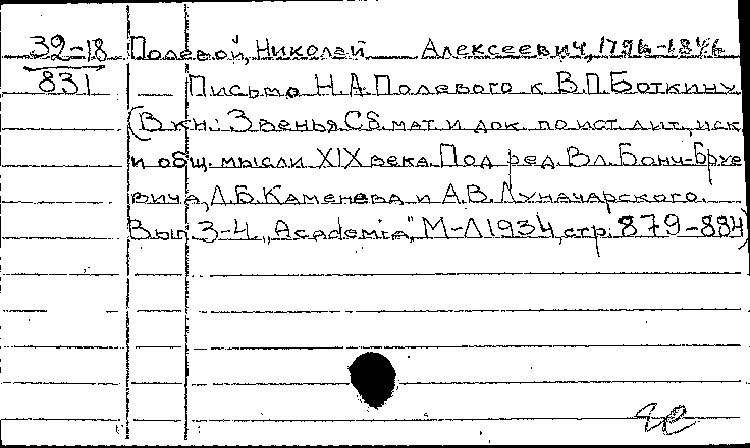 32-18 Полевой, Николай Алексеевич, 1796-1846
831 Письмо Н.А.Полевого к В.П.Боткину
(В кн.: Звенья Сб. мат. и док. по ист. лит., иск.
и общ. мысли XIX века. Под ред. Вл. Бонч-Бруе
вича, Л.Б.Каменева и А.В.Луначарского.
Вып. 3-4. „Academia", М-Л 1934, стр. 879-884)